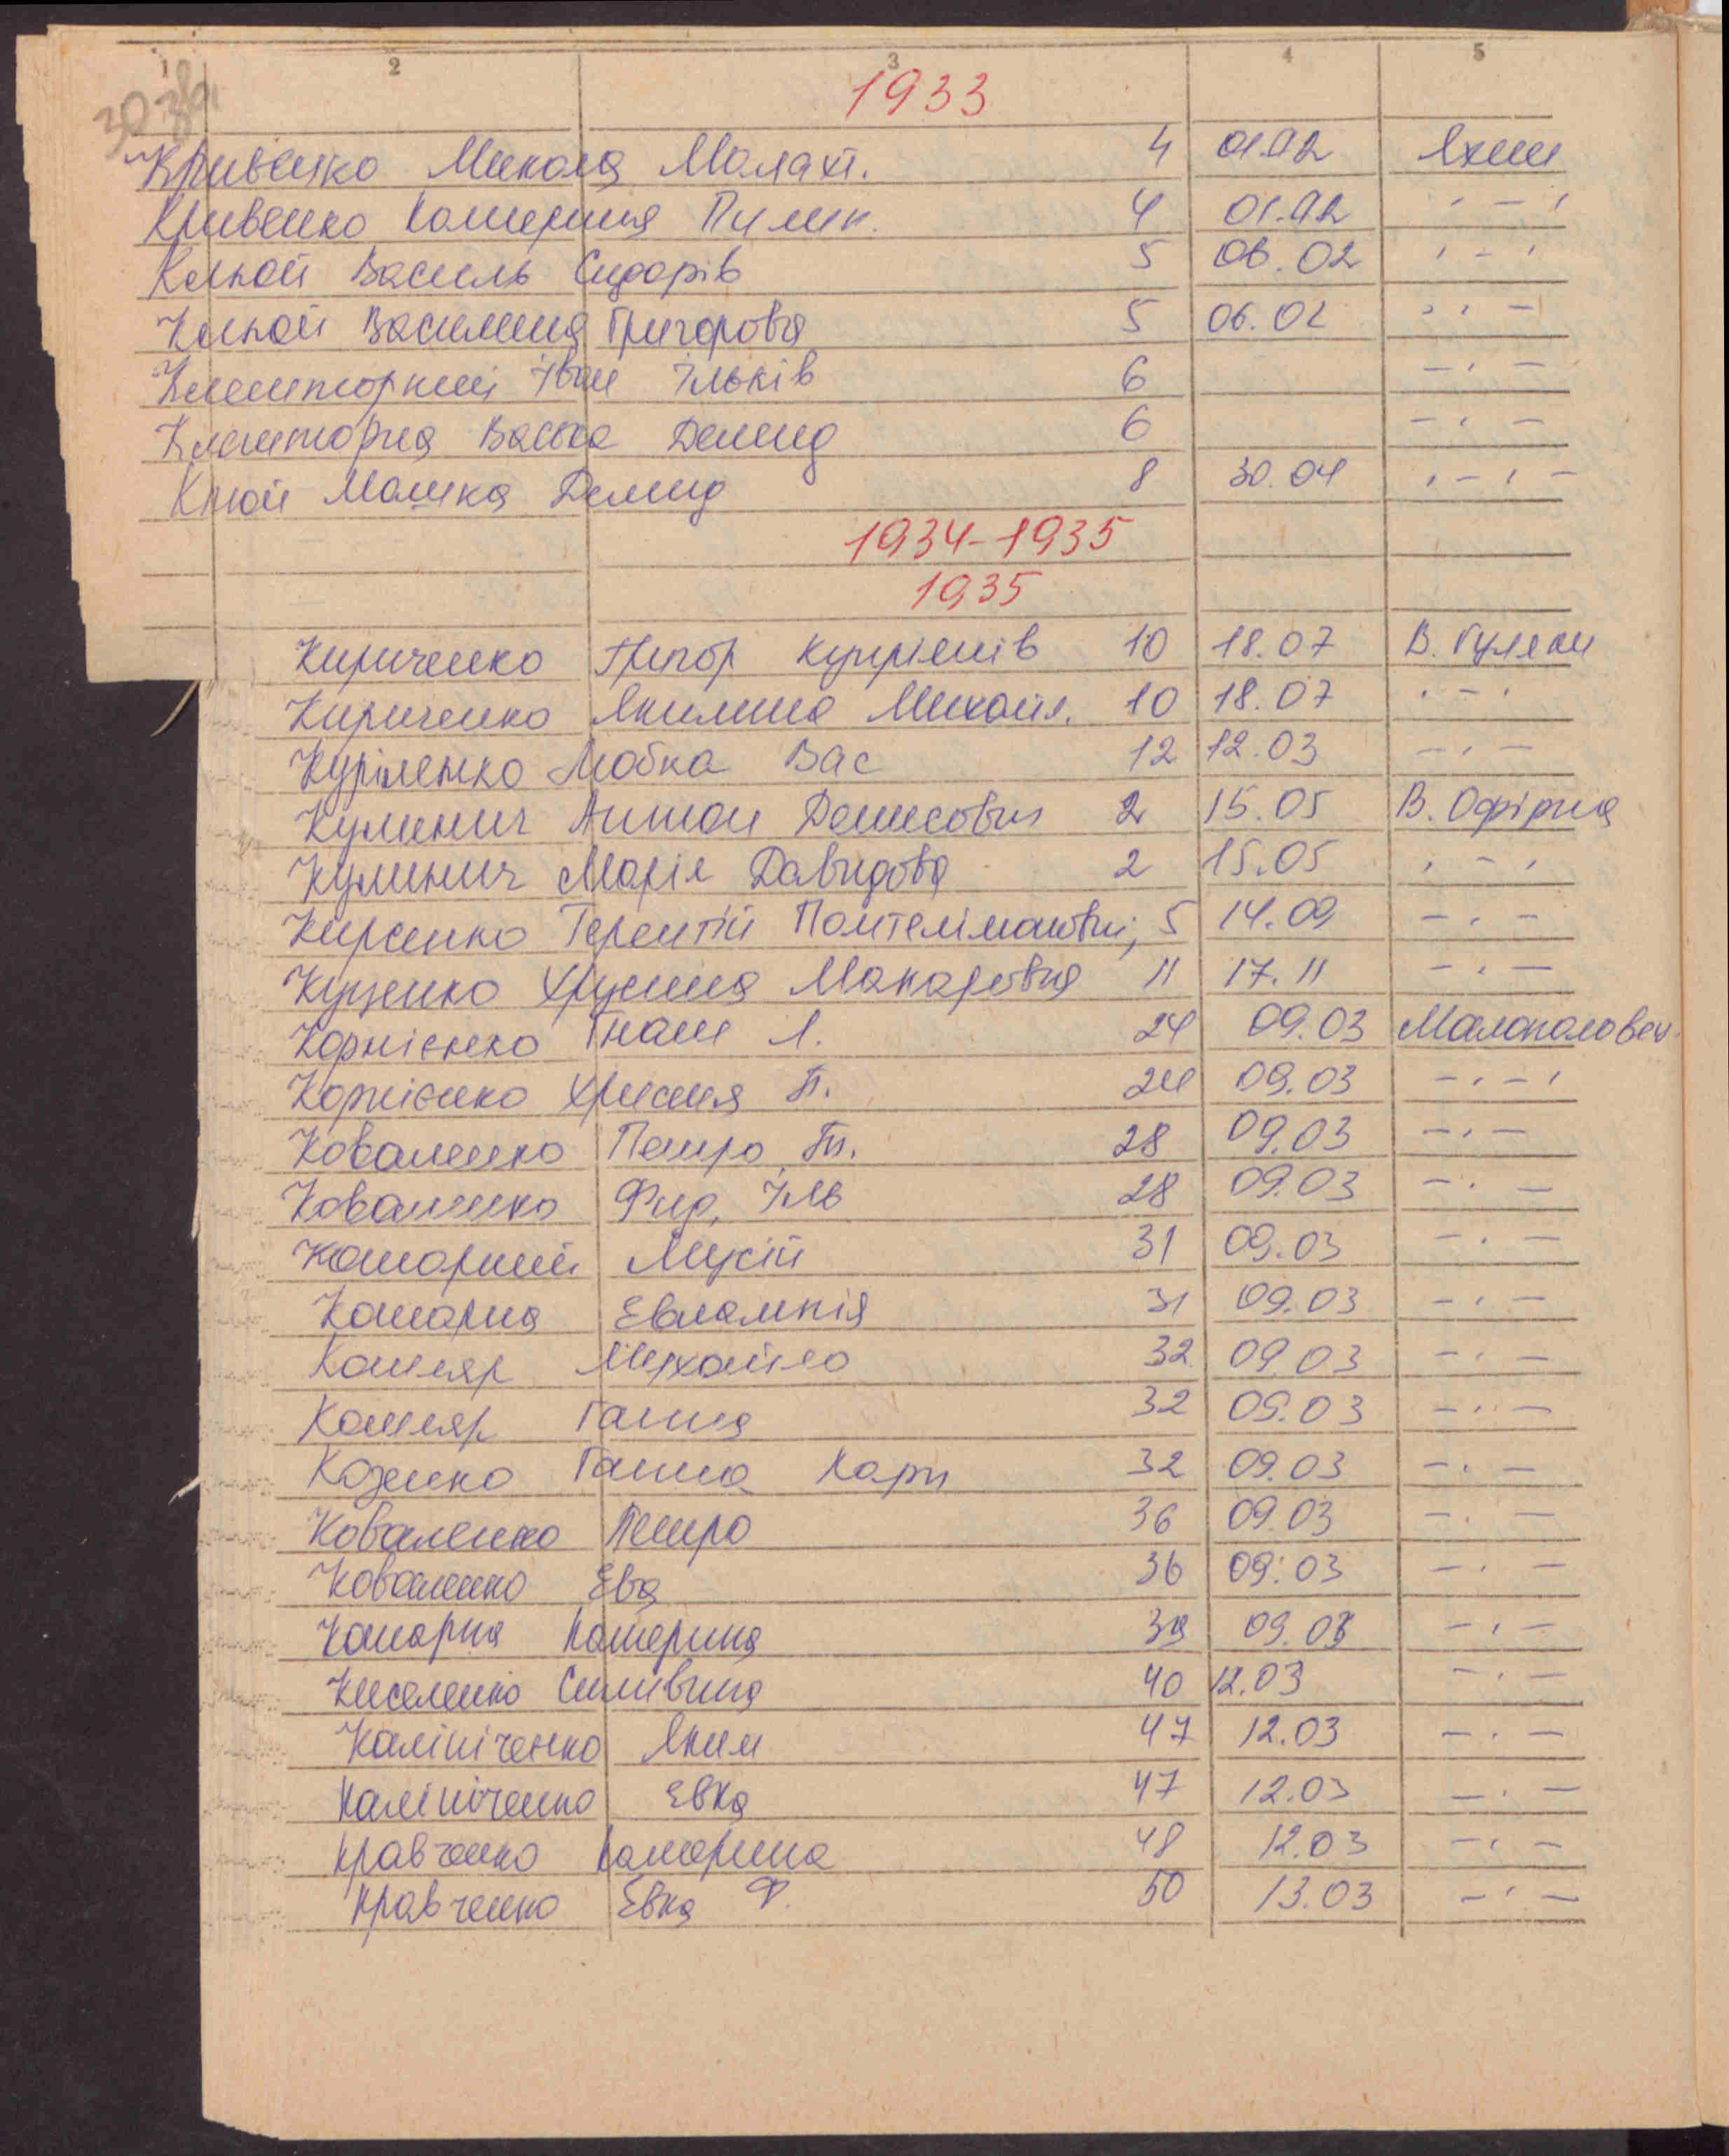 2 3 4 5
1933
Кривенко Микола Малахі. 4 01.02 Яхни
Кривенко Катерина Пилип. 4 01.02 - " -
Василь Сидорів 5 06.02 - " -
Василина Григорова 5 06.02 - " -
Клеиторний Іван Ільків 6 - " -
Клеиторна Васька Демид 6 - " -
Малашка Демид 8 30.04 - " -
1934-1935
1935
Кириченко Григор Купріянів 10 18.07 В. Гуляки
Кириченко Якилина Михайл. 10 18.07 - " -
Куріленко Любка Вас 12 12.03 - " -
Кулинич Антон Денисович 2 15.05 В. Офірна
Кулинич Марія Давидова 2 15.05 - " -
Кирсенко Терентій 5 14.09 - " -
Куценко Хрусина Макаровна 11 17.11 - " -
Корнієнко Гнат Л. 24 09.03 Малополовец.
Корнієнко Христя П. 24 09.03 - " -
Коваленко Петро Тп. 28 09.03 - " -
Коваленко Фед. Ілв 28 09.03 - " -
Комарний Мусій 31 09.03 - " -
Комарна Евлампія 31 09.03 - " -
Котляр Михайло 32 09.03 - " -
Котляр Ганна 32 09.03 - " -
Козенко Ганна Карп 32 09.03 - " -
Коваленко Петро 36 09.03 - " -
Коваленко Ева 36 09.03 - " -
Комарна Катерина 39 09.03 - " -
Киселенко 40 12.03 - " -
Калініченко Яким 47 12.03 - " -
Калініченко Евка 47 12.03 - " -
Кравченко Катерина 48 12.03 - " -
Кравченко Евка Ф. 50 13.03 - " -